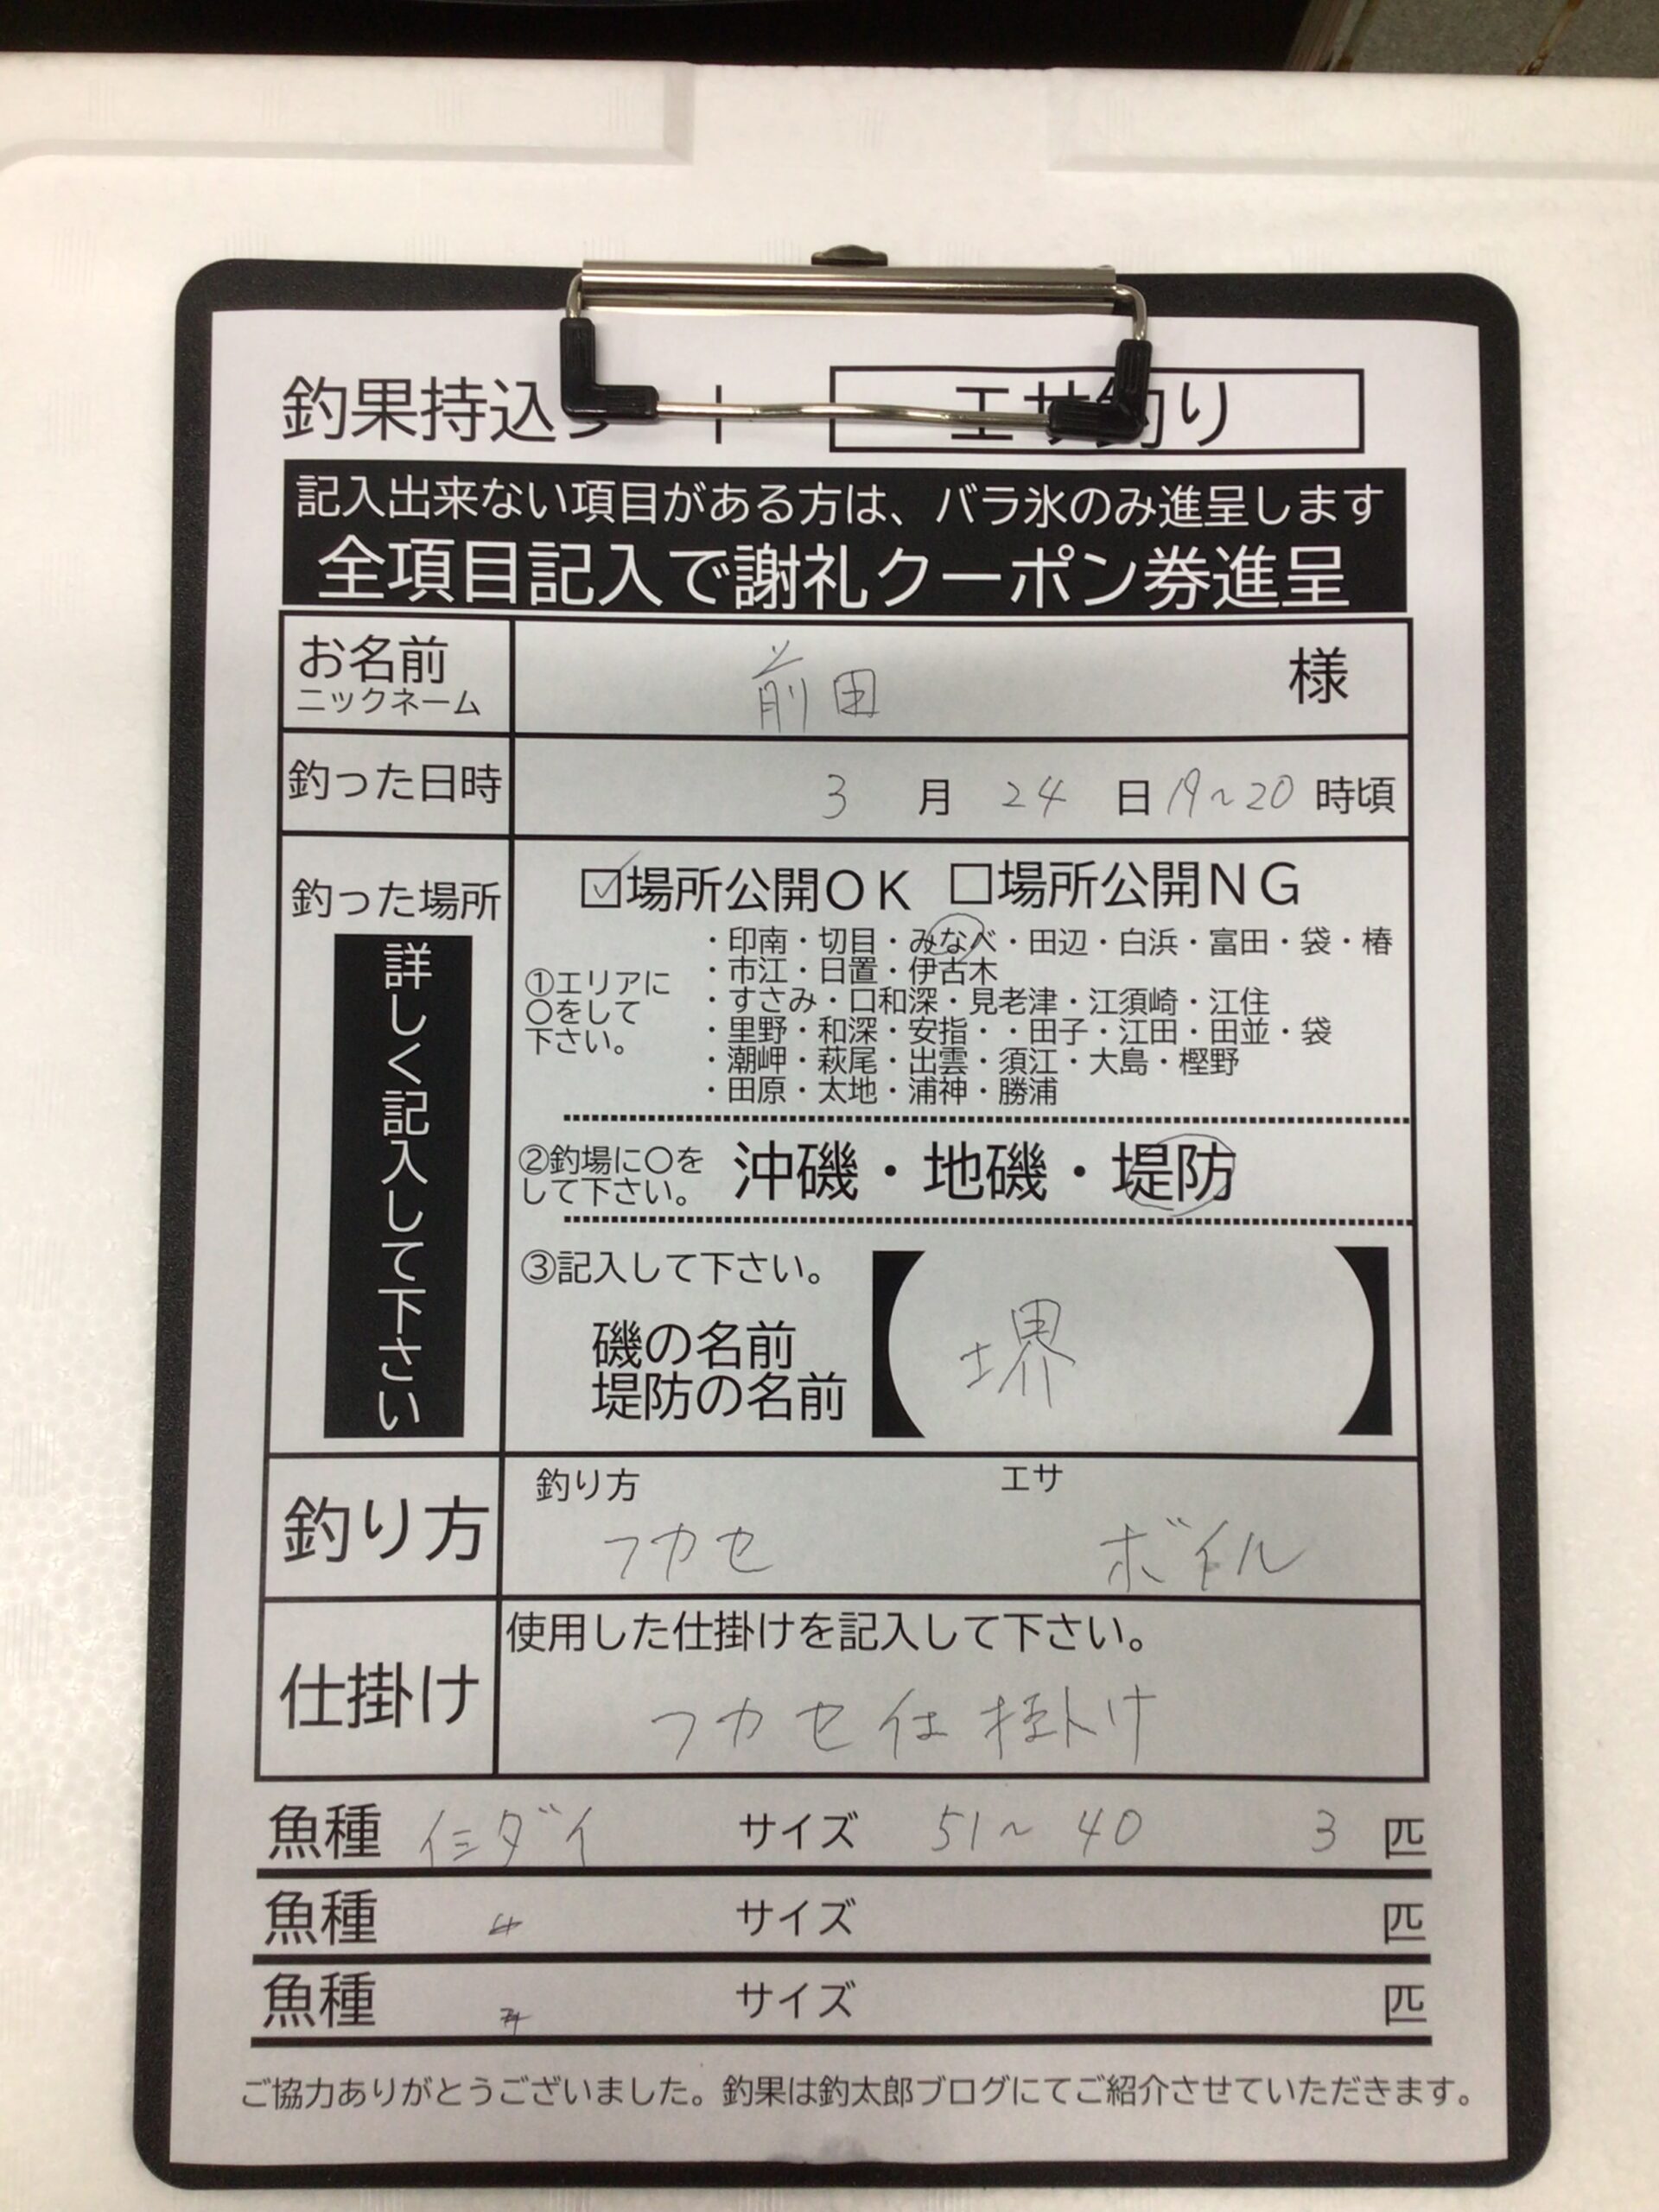 釣果持込
エサ釣り
記入出来ない項目がある方は、バラ氷のみ進呈します
全項目記入で謝礼クーポン券進呈
お名前
ニックネーム
前田 様
釣った日時
3月24日19~20時頃
釣った場所
詳しく記入して下さい
☑場所公開OK □場所公開NG
①エリアに
〇をして
下さい。
・印南・切目・みなべ・田辺・白浜・富田・袋・椿
・市江・日置・伊古木
・すさみ・口和深・見老津・江須崎・江住
・里野・和深・安指・・田子・江田・田並・袋
・潮岬・萩尾・出雲・須江・大島・樫野
・田原・太地・浦神・勝浦
②釣場に〇を
して下さい。
沖磯・地磯・堤防
③記入して下さい。
磯の名前
堤防の名前
【堺】
釣り方
釣り方 エサ
フカセ ボイル
仕掛け
使用した仕掛けを記入して下さい。
フカセ仕掛け
魚種 イミダイ サイズ 51~40 3匹
魚種 サイズ 匹
魚種 サイズ 匹
ご協力ありがとうございました。釣果は釣太郎ブログにてご紹介させていただきます。